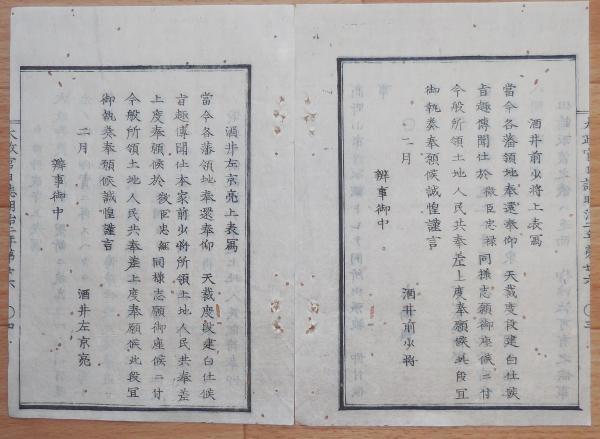 酒井前少将上表写
當今各藩領地奉還奉仰 天裁度段建白仕候
旨趣傳聞仕於 微臣忠禄同様志願御座候ニ付
今般所領土地人民共奉差上度奉願候此段宜
御執奏奉願候誠惶謹言
〇二月
酒井前少将
辨事御中。
酒井左京亮上表寫
當今各藩領地奉還奉仰 天裁度段建白仕候
旨趣傳聞仕本家前少将所領土地人民共奉差
上度奉願候於 微臣忠䋎同様志願御座候ニ付
今般所領土地人民共奉差上度奉願候此段宜
御執奏奉願候誠惶謹言
二月
酒井左京亮
辨事御中
太政官日誌明治二年第廿六 〇四